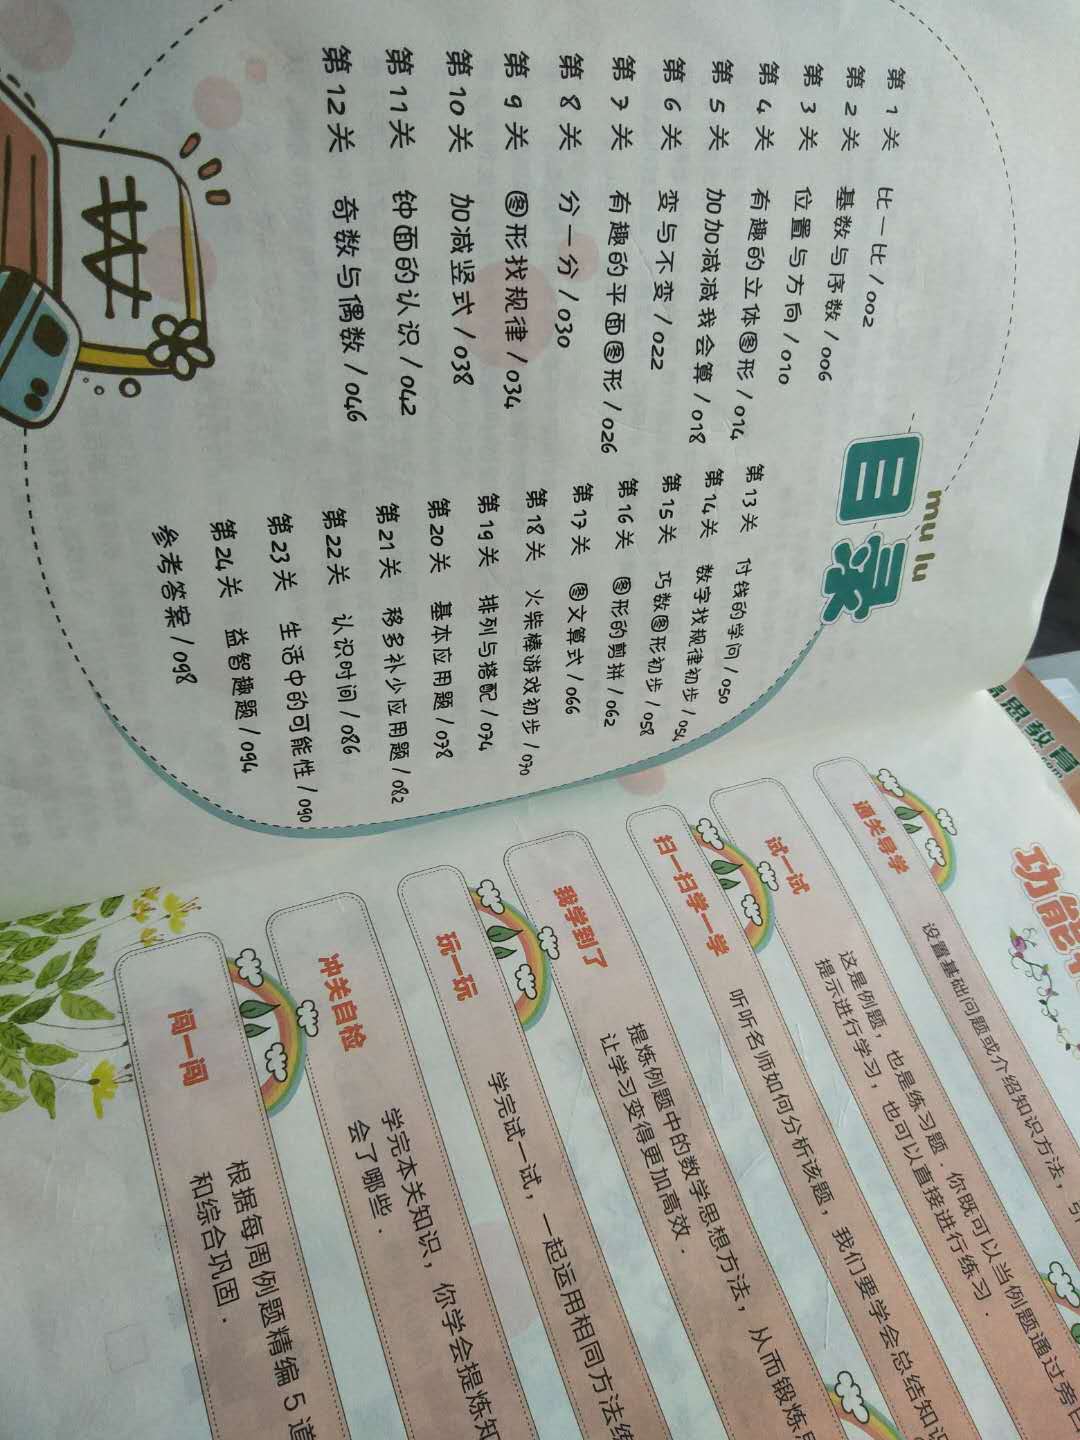 目录
mu lu
第1关 比一比/002
第2关 基数与序数/006
第3关 位置与方向/010
第4关 有趣的立体图形/014
第5关 加加减减我会算/018
第6关 变与不变/022
第7关 有趣的平面图形/026
第8关 分一分/030
第9关 图形找规律/034
第10关 加减竖式/038
第11关 钟面的认识/042
第12关 奇数与偶数/046
第13关 付钱的学问/050
第14关 数字找规律初步/054
第15关 巧数图形初步/058
第16关 图形的剪拼/062
第17关 图文算式/066
第18关 火柴棒游戏初步/070
第19关 排列与搭配/074
第20关 基本应用题/078
第21关 移多补少应用题/082
第22关 认识时间/086
第23关 生活中的可能性/090
第24关 益智趣题/094
参考答案/098
思教育
功能
通关导学
设置基础问题或介绍知识方法，引
试一试
这是例题，也是练习题．你既可以当例题通过旁白
提示进行学习，也可以直接进行练习．
扫一扫学一学
听听名师如何分析该题，我们要学会总结知识
我学到了
提炼例题中的数学思想方法，从而锻炼思
让学习变得更加高效．
玩一玩
学完试一试，一起运用相同方法练
冲关自检
学完本关知识，你学会提炼知
会了哪些．
闯一闯
根据每周例题精编5道
和综合巩固．